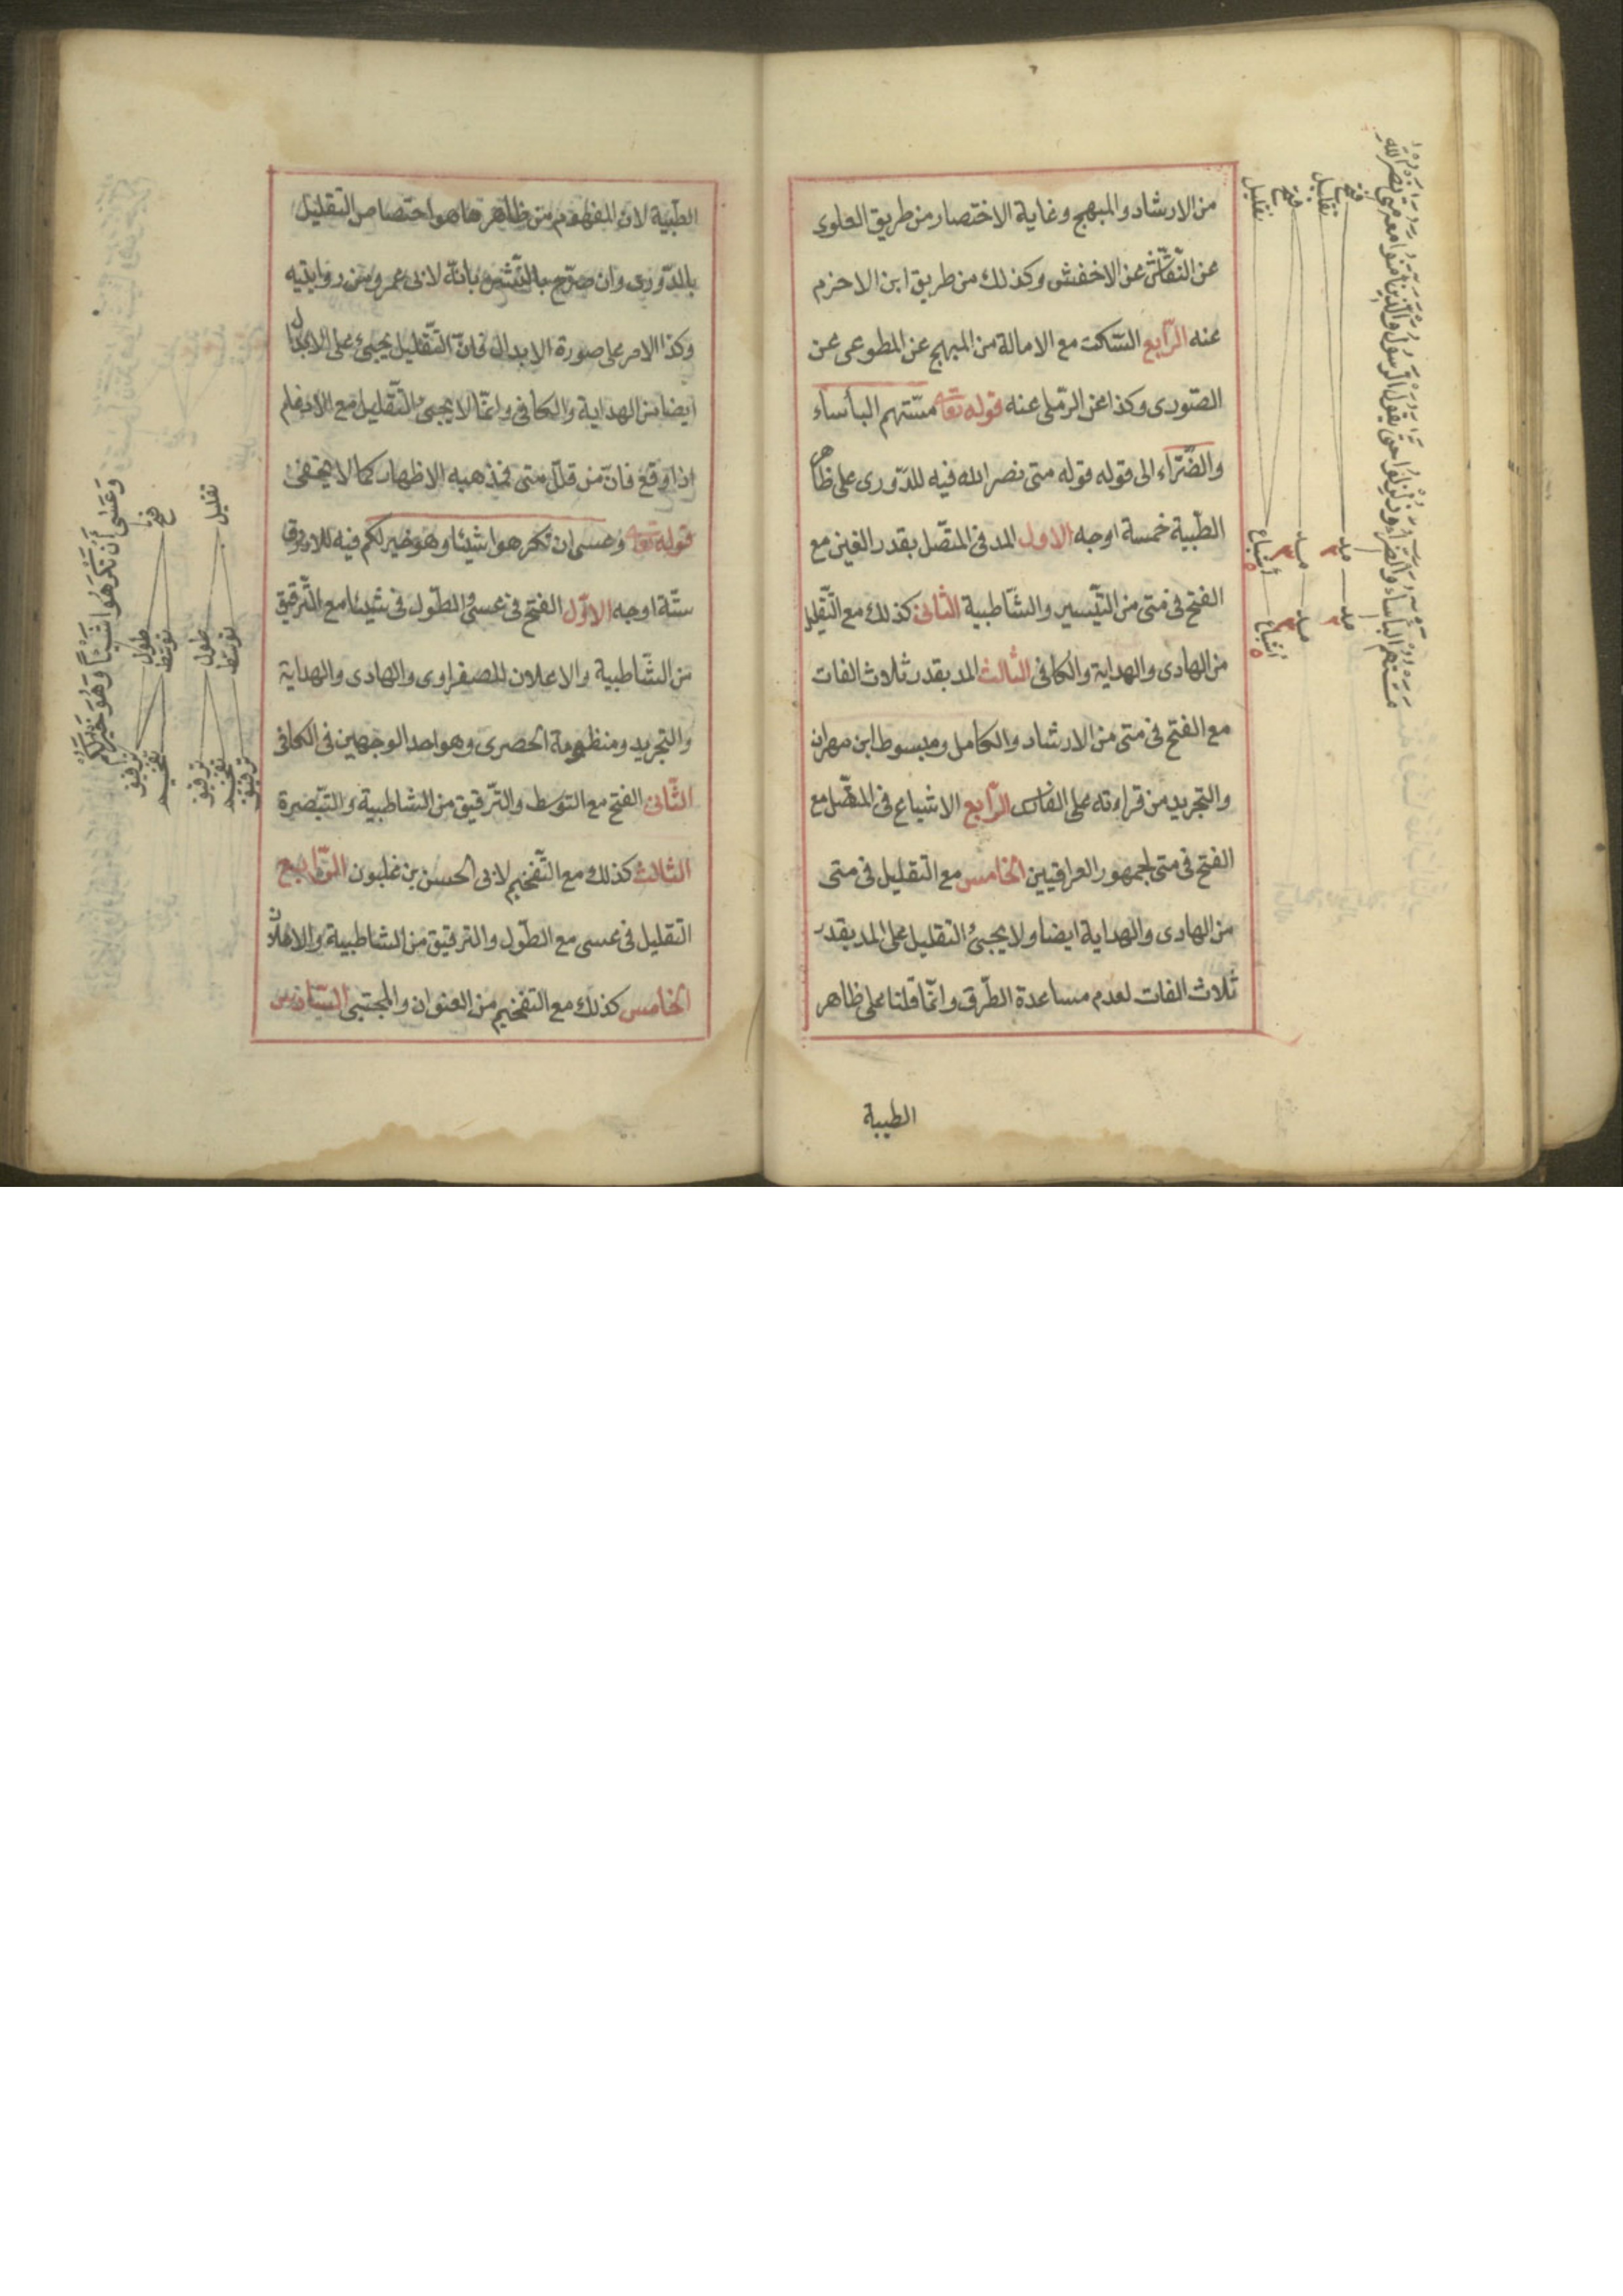 من الارشاد والمبهج وغاية الاختصار من طريق العلوى
عن النّقّاش عن الاخفش وكذلك من طريق ابن الاخرم
عنه الرّابع السّكت مع الامالة من المبهج عن المطوعى عن
الصّورى وكذا عن الرملى عنه قوله تعا مسّتهم البأساء
والضّرّاء الى قوله قوله متى نصر الله فيه للدّورى على ظاهر
الطّيبة خمسة اوجه الاول المد فى المتّصل بقدر الفين مع
الفتح فى متى من التّيسير والشّاطبية الثّانى كذلك مع التّقليل
من الهادى والهداية والكافى الثّالث المد بقدر ثلاث الفات
مع الفتح فى متى من الارشاد والكامل ومبسوط ابن مهران
والتجريد من قراءته على الفارسى الرّابع الاشباع فى المتّصل مع
الفتح فى متى لجمهور العراقيين الخامس مع التّقليل فى متى
من الهادى والهداية ايضا ولا يجئ التقليل على المد بقدر
ثلاث الفات لعدم مساعدة الطّرق وانّما قلنا على ظاهر
الطيبة
مسّتهم البأساء والضّرّاء وزلزلوا حتى يقول الرسول والذين آمنوا معه متى نصر الله
فتح
تقليل
فتح
تقليل
مد
مد
اشباع
مد
مد
اشباع
الطّيبة لانّ المفهوم من ظاهرها هو اختصاص التقليل
بالدّورى وان صرّح بالنّشر بانّه لابى عمرو من روايتيه
وكذا الامر على صورة الابدال فانّ التّقليل يجئ على الابدال
ايضا من الهداية والكافى وانّما لا يجئ التّقليل مع الادغام
اذا وقع فانّ من قلّل متى فمذهبه الاظهار كما لا يخفى
قوله تعا وعسى ان تكرهوا شيئا وهو خير لكم فيه للازرق
ستّة اوجه الاوّل الفتح فى عسى والطّول فى شيئا مع التّرقيق
من الشّاطبية والاعلان للصفراوى والهادى والهداية
والتجريد ومنظومة الحصرى وهو احد الوجهين فى الكافى
الثّانى الفتح مع التوسط والتّرقيق من الشاطبية والتّبصرة
الثالث كذلك مع التّفخيم لابى الحسن بن غلبون الرّابع
التقليل فى عسى مع الطّول والترقيق من الشاطبية والاعلان
الخامس كذلك مع التفخيم من العنوان والمجتبى السّادس
وَعَسَى أَنْ تَكْرَهُوا شَيْئًا وَهُوَ خَيْرٌ لَكُمْ
فتح
تقليل
طول
توسّط
طول
توسّط
ترقيق
تفخيم
ترقيق
تفخيم
ترقيق